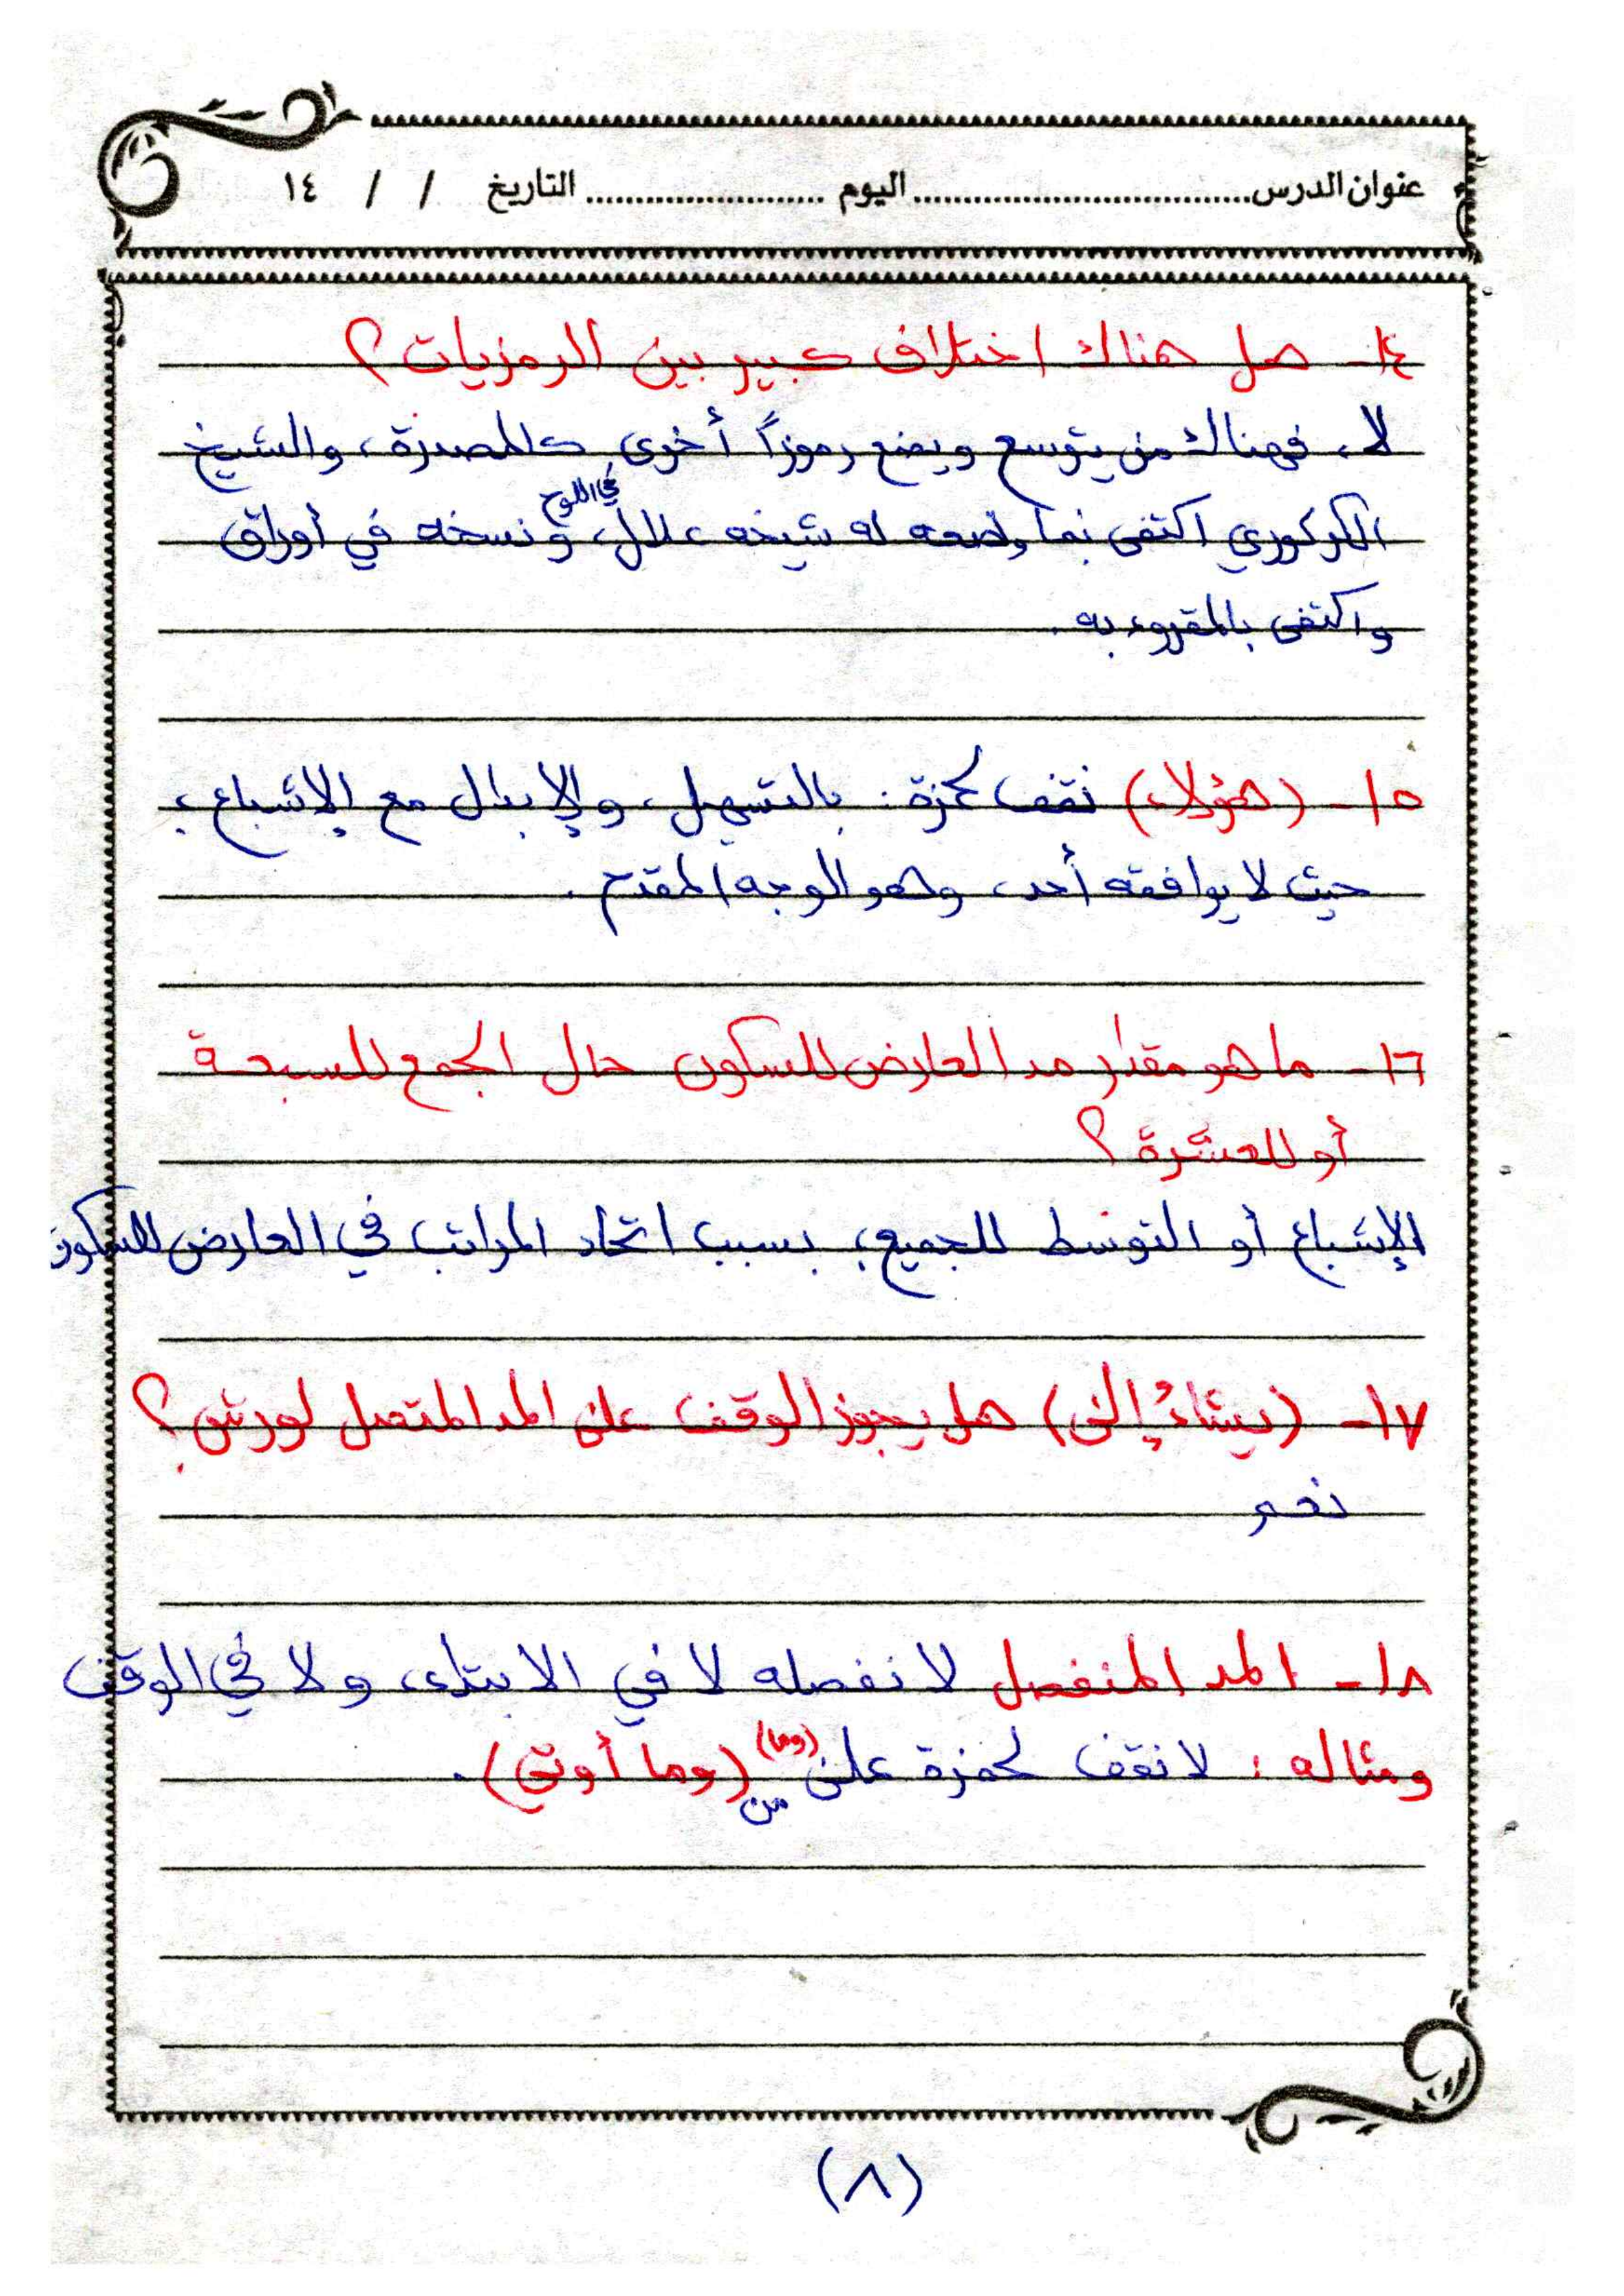 عنوان الدرس................................اليوم ........................ التاريخ / / ١٤
١٤- هل هناك اختلاف كبير بين الرمزيات؟
لا، فهناك من يتوسع ويضع رموزاً أخرى كالمصدرة، والشيخ
الكركوري اكتفى بما وضعه له شيخه علال في اللوح، ونسخه في أوراق
واكتفى بالمقروء به.
١٥- (هؤلاء) نقف لحمزة: بالتسهيل، والإبدال مع الإشباع،
حيث لا يوافقه أحد، وهو الوجه المقدم.
١٦- ما هو مقدار مد العارض للسكون حال الجمع للسبعة
أو للعشرة؟
الإشباع أو التوسط للجميع، بسبب اتحاد المراتب في العارض للسكون
١٧- (يشاءُ إلى) هل يجوز الوقف على المد المتصل لورش؟
نعم
١٨- المد المنفصل لا نفصله لا في الابتداء ولا في الوقف
ومثاله: لا نقف لحمزة على (وما) من (وما أوتي).
(٨)